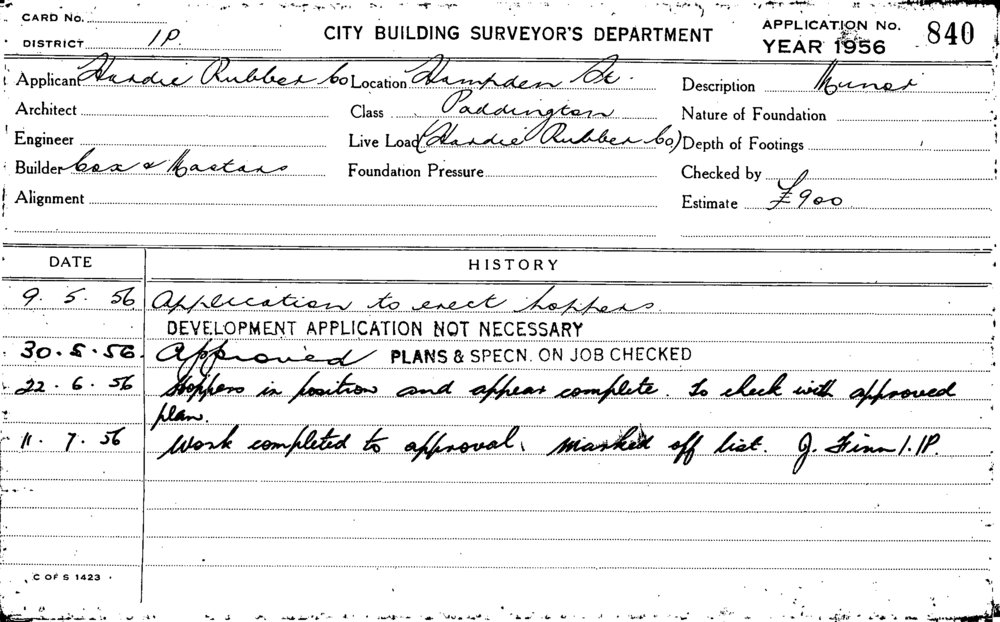 CARD No.
DISTRICT 1P.
CITY BUILDING SURVEYOR'S DEPARTMENT
APPLICATION No. 840
YEAR 1956
Applicant Hardie Rubber Co Location Hampden St. Description Minor
Architect Class Paddington Nature of Foundation
Engineer Live Load (Hardie Rubber Co) Depth of Footings
Builder Cox & Mastars Foundation Pressure Checked by
Alignment Estimate £900
DATE HISTORY
9. 5. 56 Application to erect hoppers.
DEVELOPMENT APPLICATION NOT NECESSARY
30. 5. 56. Approved PLANS & SPECN. ON JOB CHECKED
22. 6. 56 Hoppers in position and appear complete. To check with approved
plan.
11. 7. 56 Work completed to approval. Marked off list. J. Finn 1.1P.
C OF S 1423